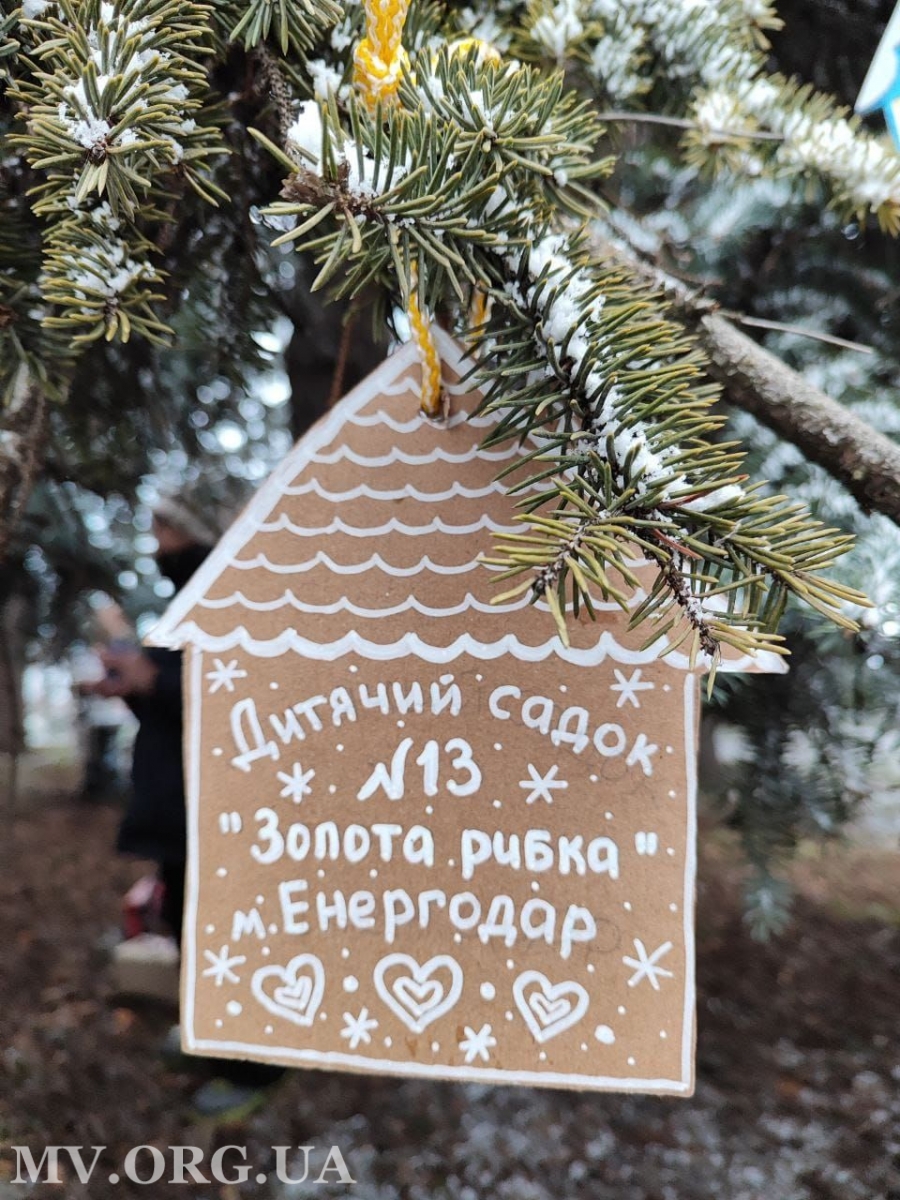 Дитячий садок
N13
"Золота рибка"
м.Енергодар
MV.ORG.UA